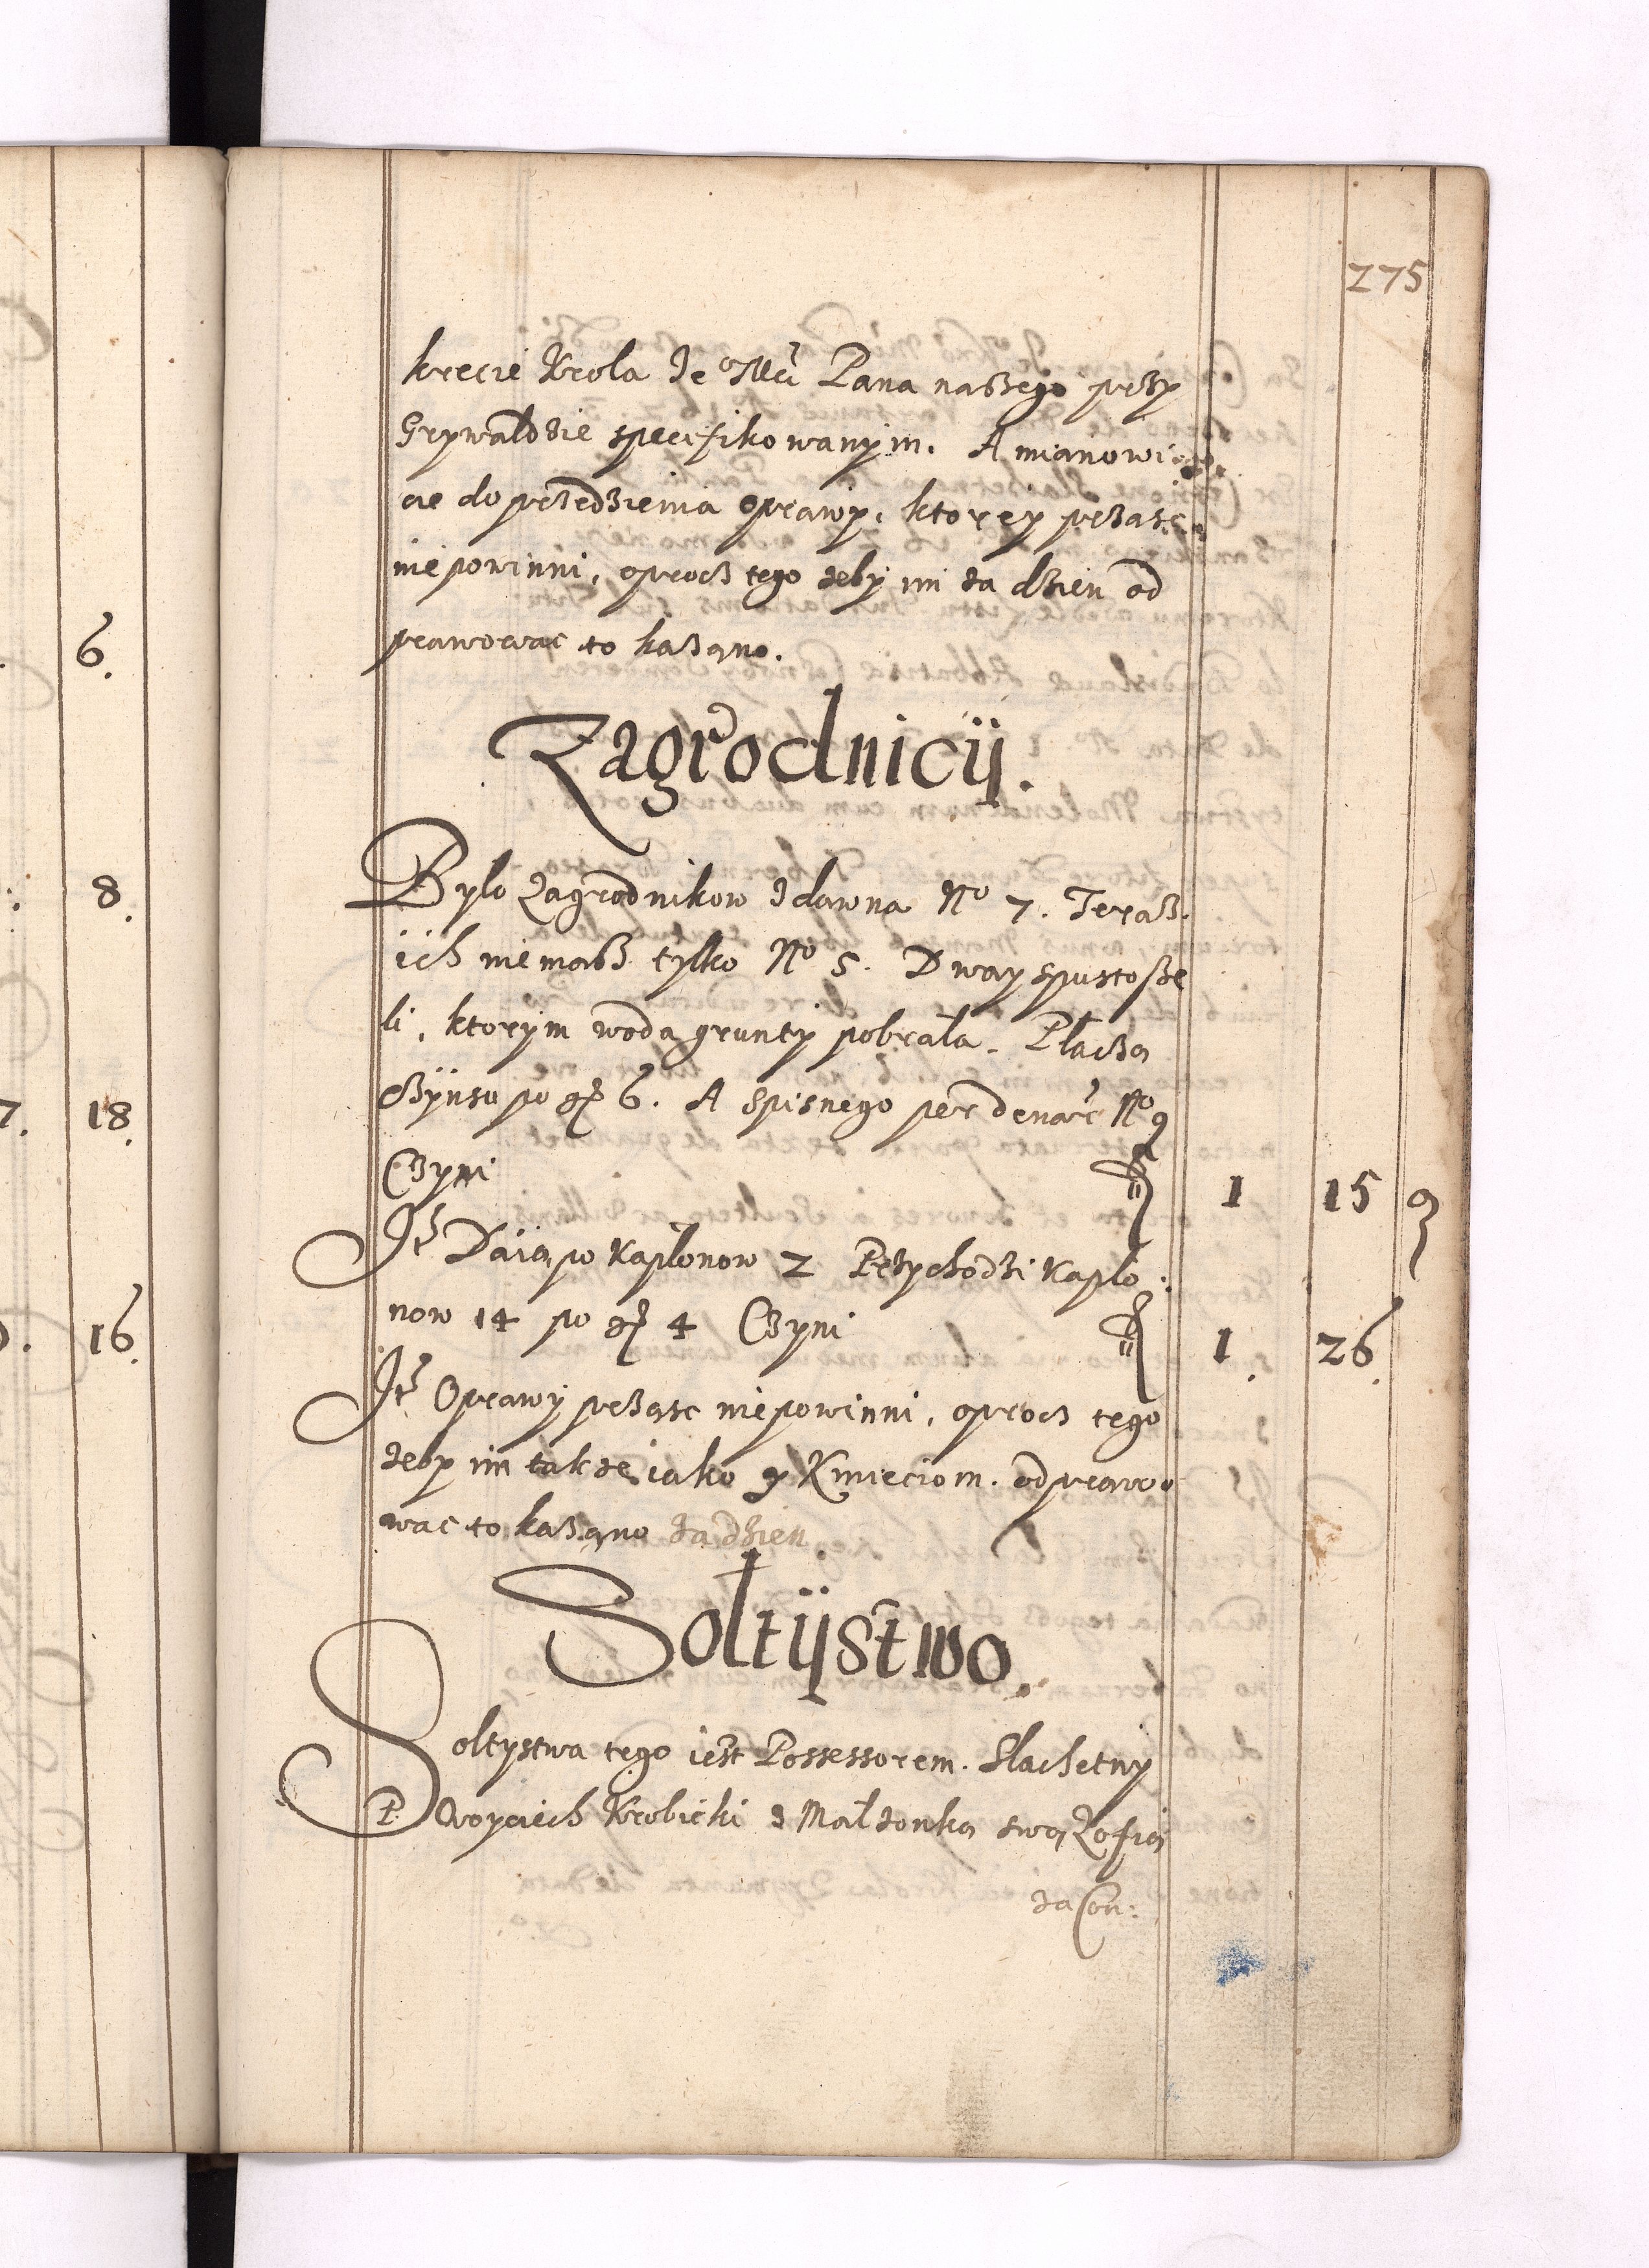 275
krecie Krola Je Mći Pana naszego przy
Grywałdzie specifikowanym. A mianowi
cie do przędzienia oprawy, ktorey prząsc
nie powinni, oprocz tego żeby im za dzien od
prawowac to kazano.
Zagrodnicÿ.
Bylo Zagrodnikow zdawna No 7. Teraz
ich nie masz tylko No 5. Dway spustosze
li, ktorym woda grunty pobrała. Płacza
Czÿnsu po gr 6. A Spisnego per denar No 9
Czyni 1 15 9
It Daią po Kapłonow 2 Przychodzi Kapło
now 14 po gr 4 Czyni 1. 26.
It Oprawy prząsc nie powinni, oprocz tego
żeby im takze iako y Kmieciom. odprawo
wac to kazano za dzien.
SołtÿStwo.
Soltystwa tego iest Possessorem. Slachetny
P. Woyciech Krobicki z Małzonką swą Zofią
za Con:
6.
8.
7. 18.
16.